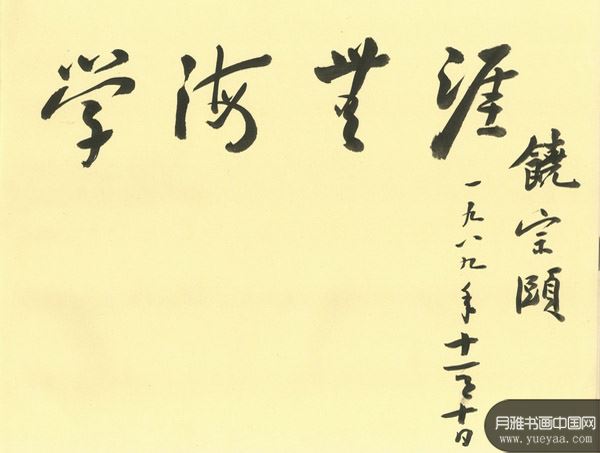 学海無涯
饒宗頤
一九八九年十一月十日
月雅书画中国网
www.yueyaa.com